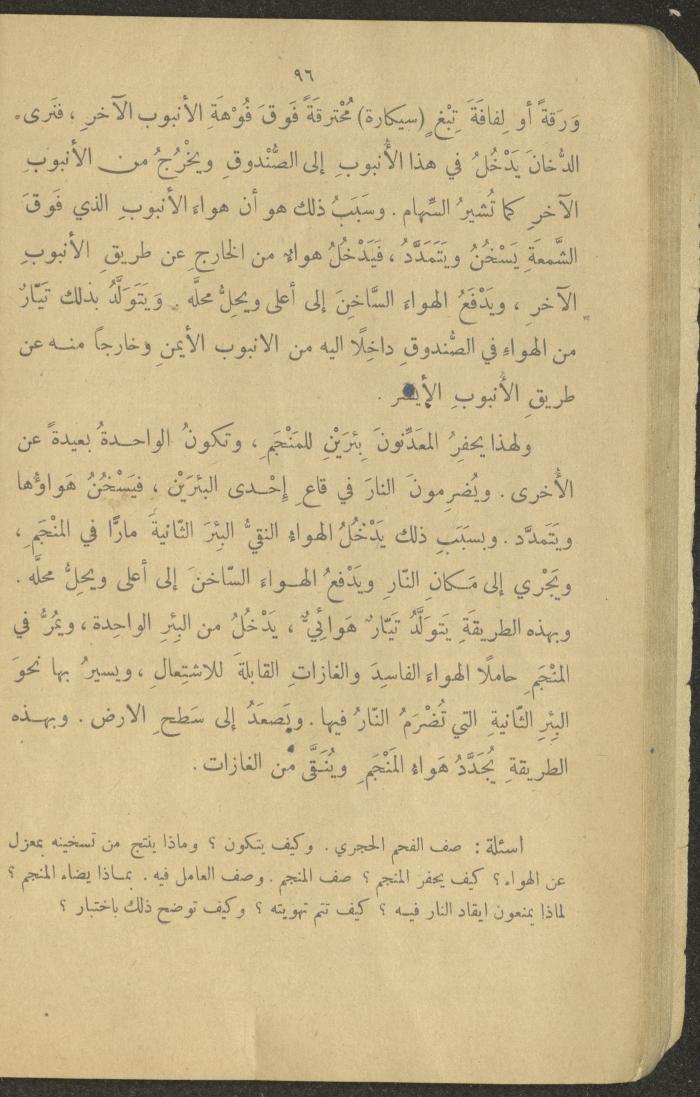 ٩٦
وَرَقةً أو لِفافَةَ تِبْغٍ (سيكارة) مُحْترقَةً فَوقَ فُوْهَةِ الأنبوب الآخرِ ، فنَرى
الدُّخانَ يَدْخُلُ في هذا الأُنبوبِ إلى الصُّنْدوقِ ويخْرُجُ من الأنبوبِ
الآخرِ كما تُشيرُ السِّهام . وسَبَبُ ذلك هو أن هواء الأنبوبِ الذي فَوقَ
الشَّمعَةِ يَسْخُنُ ويَتَمَدَّدُ ، فَيَدْخُلُ هواءٌ من الخارجِ عن طريقِ الأنبوبِ
الآخرِ ، ويَدْفَعُ الهواءَ السَّاخِنَ إلى أعلى ويحِلُّ محلَّه . وَيَتَوَلَّدُ بذلك تَيّارٌ
من الهواءِ في الصُّندوقِ داخِلًا اليه من الانبوب الأيمنِ وخارجاً منه عن
طريقِ الأُنبوبِ الأيسر .
ولهذا يحفِرُ المعَدِّنونَ بِئرَيْنِ للمَنْجَمِ ، وتكونُ الواحدةُ بعيدةً عن
الأُخرى . ويُضرِمونَ النارَ في قاعِ إِحْدى البئرَيْن ، فيَسْخُنُ هَواؤُها
ويَتَمدَّد . وبسبَبِ ذلك يَدْخُلُ الهواءُ النقيُّ البِئرَ الثّانيةَ مارًّا في المنْجَمِ ،
ويَجْري إلى مَكانِ النّارِ ويَدْفعُ الهواءَ السّاخنَ إلى أعلى ويحِلُّ محلَّه .
وبهذه الطريقَةِ يَتولَّدُ تَيّارٌ هَوائيٌّ ، يَدْخُلُ من البِئرِ الواحِدة ، ويمُرُّ في
المنْجَمِ حاملًا الهواءَ الفاسِدَ والغازاتِ القابلةَ للاشتِعالِ ، ويسيرُ بها نحوَ
البِئرِ الثّانيةِ التي تُضْرَمُ النّارُ فيها . ويَصعَدُ إلى سَطحِ الارض . وبهذه
الطريقةِ يُجَدَّدُ هَواءُ المَنْجَمِ ويُنَقَّى مِن الغازات .
اسئلة : صف الفحم الحجري . وكيف يتكون ؟ وماذا ينتج من تسخينه بمعزل
عن الهواء ؟ كيف يحفر المنجم ؟ صف المنجم . وصف العامل فيه . بماذا يضاء المنجم ؟
لماذا يمنعون ايقاد النار فيه ؟ كيف تتم تهويته ؟ وكيف توضح ذلك باختبار ؟